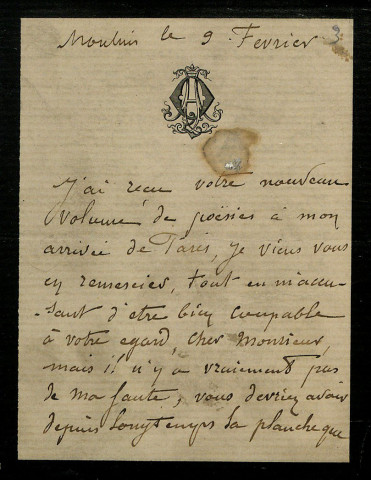 Moulins le 9. Fevrier
3
J'ai recu votre nouveau
volume de poësies à mon
arrivée de Paris, je viens vous
en remercier, tout en m'accu-
-sant d'être bien coupable
à votre egard, cher Monsieur,
mais il n'y a vraiment pas
de ma faute, vous devriez avoir
depuis longtemps la planche que